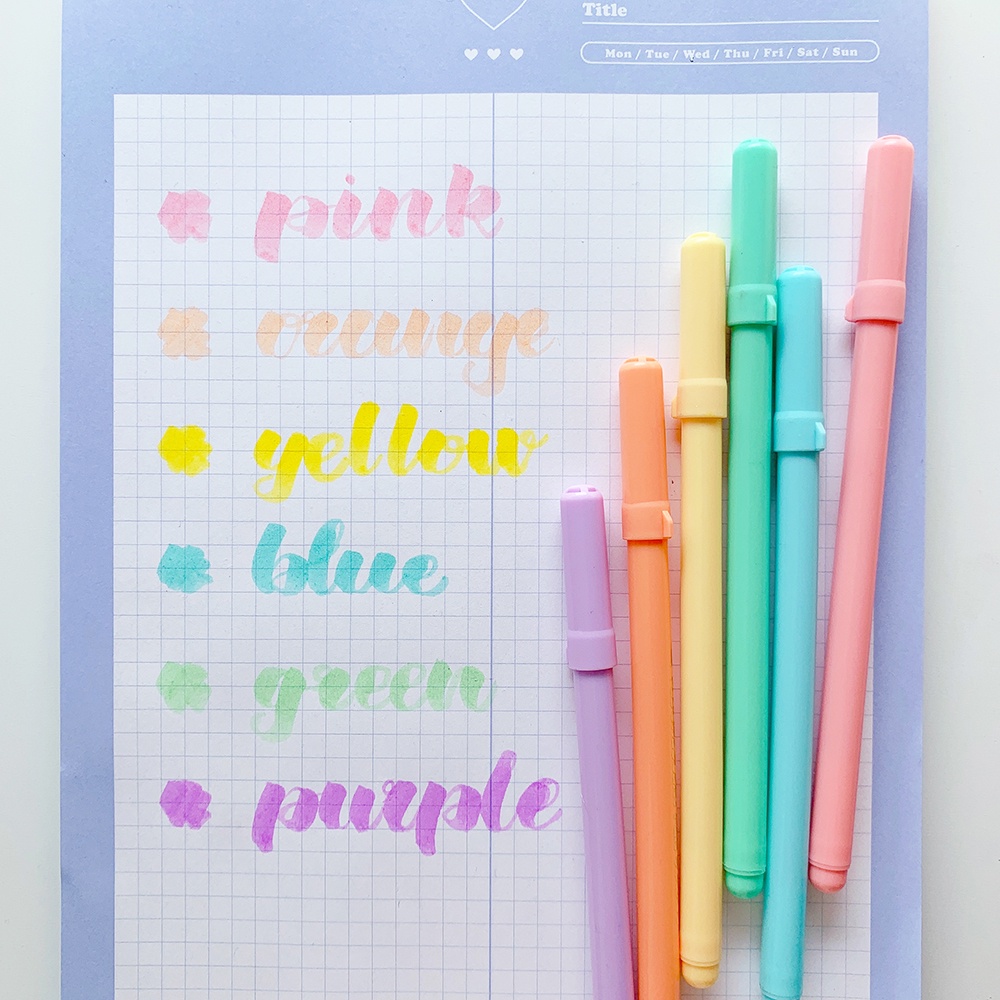 Title
Mon / Tue / Wed / Thu / Fri / Sat / Sun
pink
orange
yellow
blue
green
purple